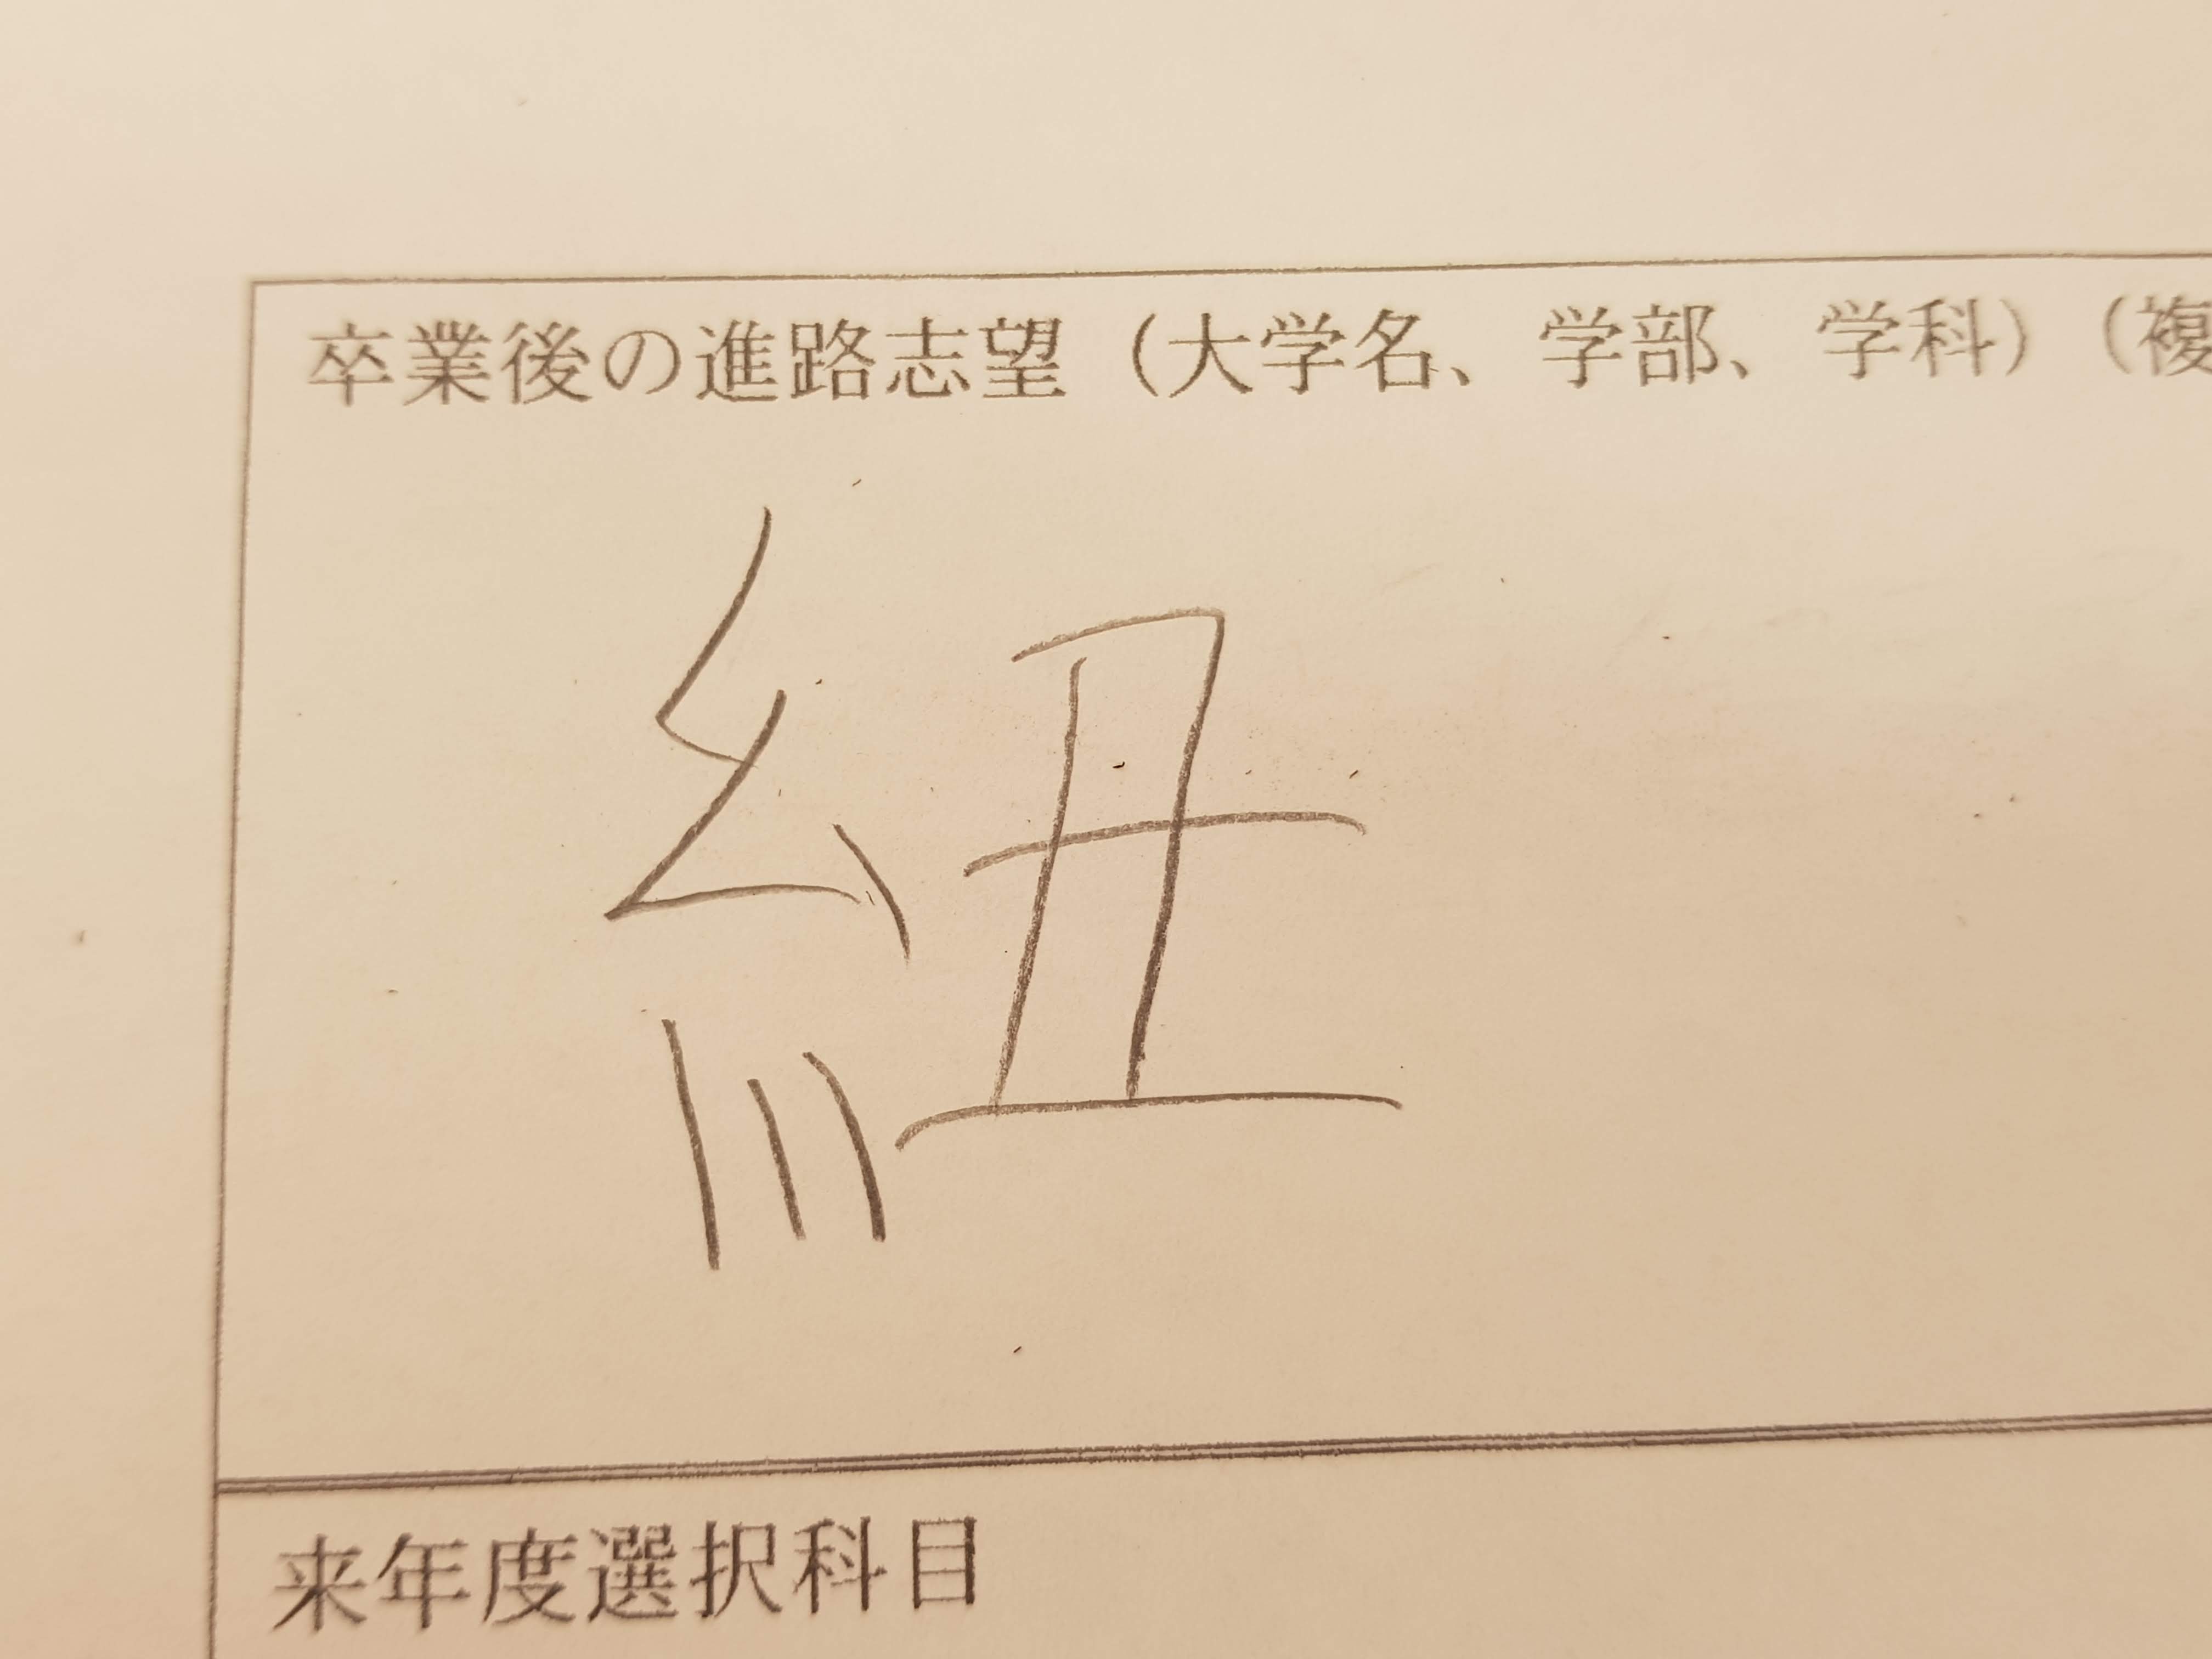 卒業後の進路志望（大学名、学部、学科）（複
紐
来年度選択科目